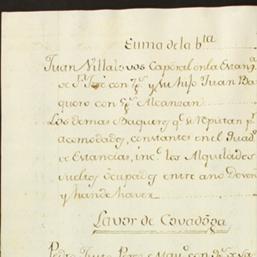 Suma de la b.ta
Juan Villalovos Caporal en la Estanz.a
de S.n José con 7 p.s y su hijo Juan Ba
quero con 5 p.s Alcanzan
Los demas Baqueros q.e se reputan p.r
acomodados, constantes en el Quad.o
de Estancias, inc.s los Alquilados
sueltos ocupados entre año
y han de haver
Lavor de Covadonga
Pedro